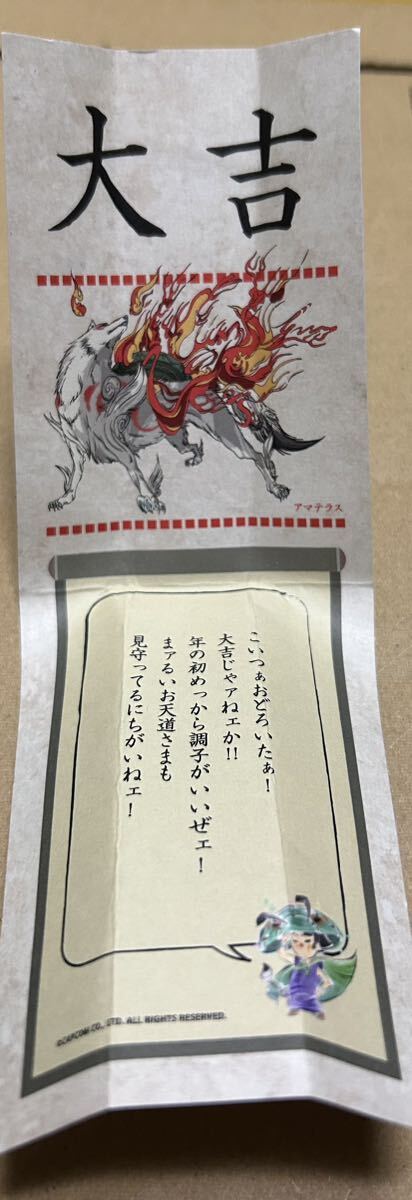 大吉
アマテラス
こいつぁおどろいたぁ！
大吉じゃァねェか!!
年の初めっから調子がいいぜェ！
まァるいお天道さまも
見守ってるにちがいねェ！
©CAPCOM CO., LTD. ALL RIGHTS RESERVED.